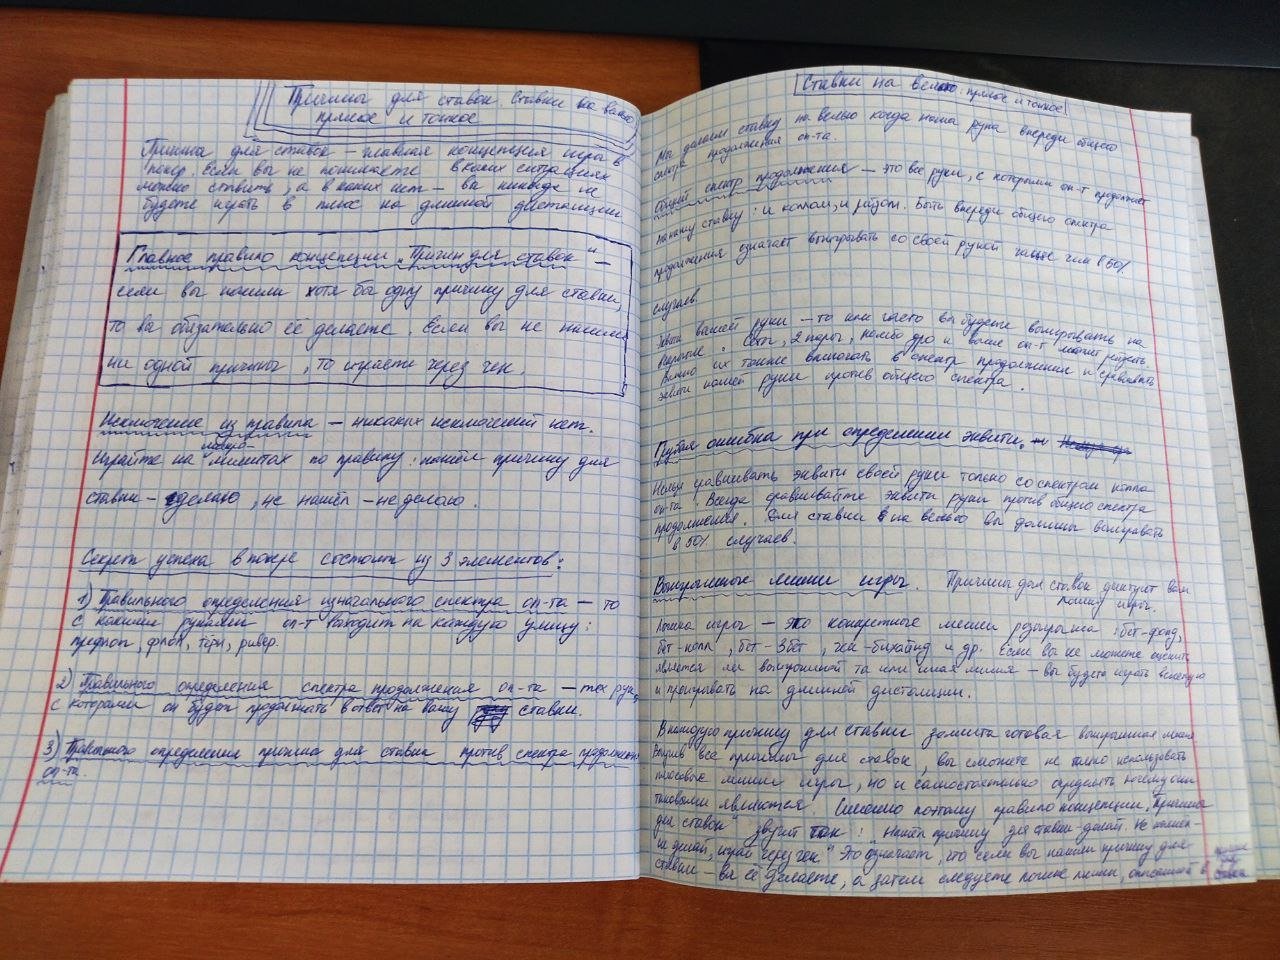 Причины для ставок. Ставки на велью
прямое и тонкое
Причины для ставок – главная концепция игры в
покер. Если вы не понимаете в каких ситуациях
можно ставить, а в каких нет – вы никогда не
будете играть в плюс на длинной дистанции
Главное правило концепции „Причин для ставок" –
если вы нашли хотя бы одну причину для ставки,
то вы обязательно её делаете. Если вы не нашли
ни одной причины, то играете через чек.
Исключение из правила – никаких исключений нет.
Играйте на микро-лимитах по правилу: нашёл причину для
ставки – делаю, не нашёл – не делаю.
Секрет успеха в покере состоит из 3 элементов:
1) Правильного определения изначального спектра оп-та – то
с какими руками оп-т входит на каждую улицу:
префлоп, флоп, тёрн, ривер.
2) Правильного определения спектра продолжения оп-та – тех рук,
с которыми он будет продолжать в ответ на вашу ставки.
3) Правильного определения причины для ставки против спектра продолжения
оп-та.
Ставки на велью: прямое и тонкое
Мы делаем ставку на велью когда наша рука впереди общего
спектра продолжения оп-та.
Общий спектр продолжения – это все руки, с которыми оп-т продолжает
на нашу ставку: и коллом, и рейзом. Быть впереди общего спектра
продолжения означает выигрывать со своей рукой чаще чем в 50%
случаев.
Эквити вашей руки – то как часто вы будете выигрывать на
Сеты, 2 пары, комбо дро и выше оп-т может рейзить.
Важно их также включать в спектр продолжения и сравнивать
эквити нашей руки против общего спектра.
Грубая ошибка при определении эквити.
Нельзя сравнивать эквити своей руки только со спектром колла
оп-та. Всегда сравнивайте эквити руки против общего спектра
продолжения. Для ставки на велью вы должны выигрывать
в 50% случаев.
Выигрышные линии игры. Причины для ставок диктует вам
линию игры.
Линия игры – это конкретные линии розыгрыша: бет-фолд,
бет-колл, бет-3бет, чек-бихайнд и др. Если вы не можете оценить
является ли выигрышной та или иная линия – вы будете играть вслепую
и проигрывать на длинной дистанции.
В каждую причину для ставки зашита готовая выигрышная линия
Выучив все причины для ставок, вы сможете не только использовать
плюсовые линии игры, но и самостоятельно определять почему они
таковыми являются. Именно поэтому правило концепции „Причины
для ставок" звучит так: „Нашёл причину для ставки – делай. Не нашёл –
не делай, играй через чек" Это означает, что если вы нашли причину для
ставки – вы её делаете, а затем следуете линии, описанной в